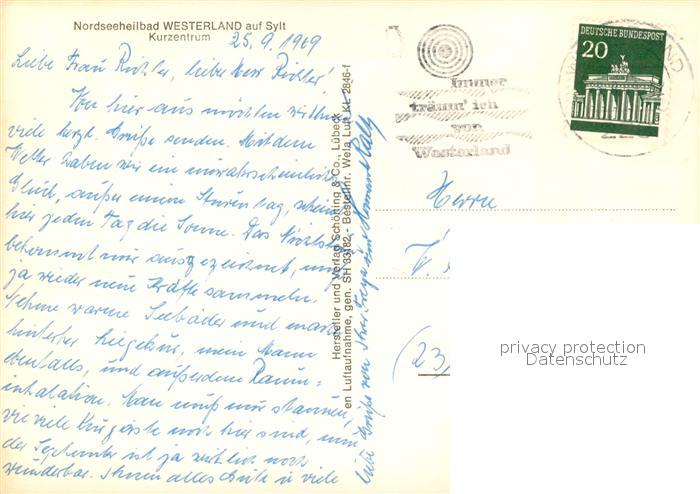 Nordseeheilbad WESTERLAND auf Sylt
Kurzentrum
25. 9. 1969
Liebe Frau Richter, lieber Herr Richter!
Von hier aus möchten wir Ihnen
viele herzl. Grüße senden. Mit dem
Wetter haben wir ein unwahrscheinliches
Glück, außer einem Sturmtag, scheint
hier jeden Tag die Sonne. Das Nichtstun
bekommt mir ausgezeichnet, muß
ja wieder neue Kräfte sammeln.
Nehme warme Seebäder und mache
hinterher Liegekur, mein Mann
ebenfalls, und außerdem Raum=
inhalation. Man muß nur staunen,
wie viele Kurgäste noch hier sind, und
der September ist ja wirklich noch
wunderbar. Ihnen alles Gute u. viele
liebe Grüße von Ihrer und
Hersteller und Verlag Schöning & Co., Lübeck
en Luftaufnahme, gen. SH 33/82 - Bestellnr. Wela Luft KL 2846-f
immer
träum' ich
von
Westerland
DEUTSCHE BUNDESPOST
20
Herrn
(23)
privacy protection
Datenschutz